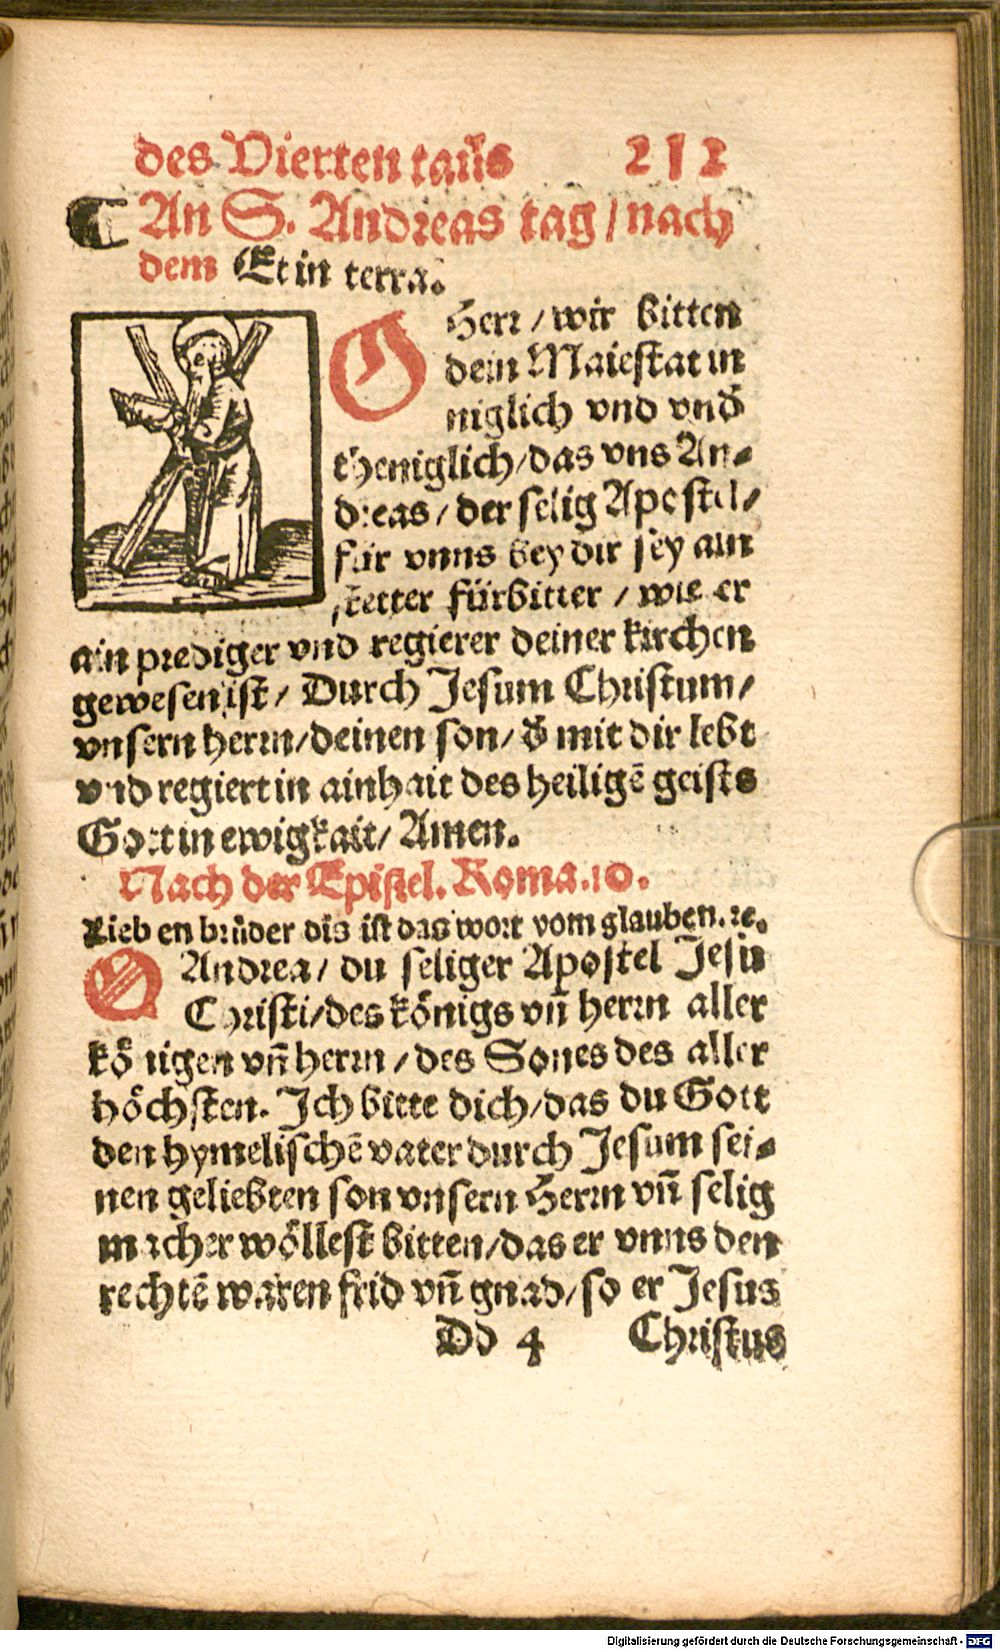 des Vierten tails 212
¶ An S. Andreas tag / nach
dem Et in terra.
O Herr / wir bitten
dein Maiestat in
niglich vnd vnd̕
theniglich / das vns An⸗
dreas / der selig Apostel /
für vnns bey dir sey ain
stetter fürbitter / wie er
ain prediger vnd regierer deiner kirchen
gewesen ist / Durch Jesum Christum /
vnsern herrn / deinen son / d̕ mit dir lebt
vnd regiert in ainhait des heiligē geists
Gott in ewigkait / Amen.
Nach der Epistel. Roma. 10.
Lieben brůder dis ist das wort vom glauben. ꝛc.
O Andrea / du seliger Apostel Jesu
Christi / des königs vn̄ herrn aller
königen vn̄ herrn / des Sones des aller
höchsten. Ich bitte dich / das du Gott
den hymelischē vater durch Jesum sei⸗
nen geliebten son vnsern Herrn vn̄ selig
macher wöllest bitten / das er vnns den
rechtē waren frid vn̄ gnad / so er Jesus
Dd 4 Christus
Digitalisierung gefördert durch die Deutsche Forschungsgemeinschaft - DFG